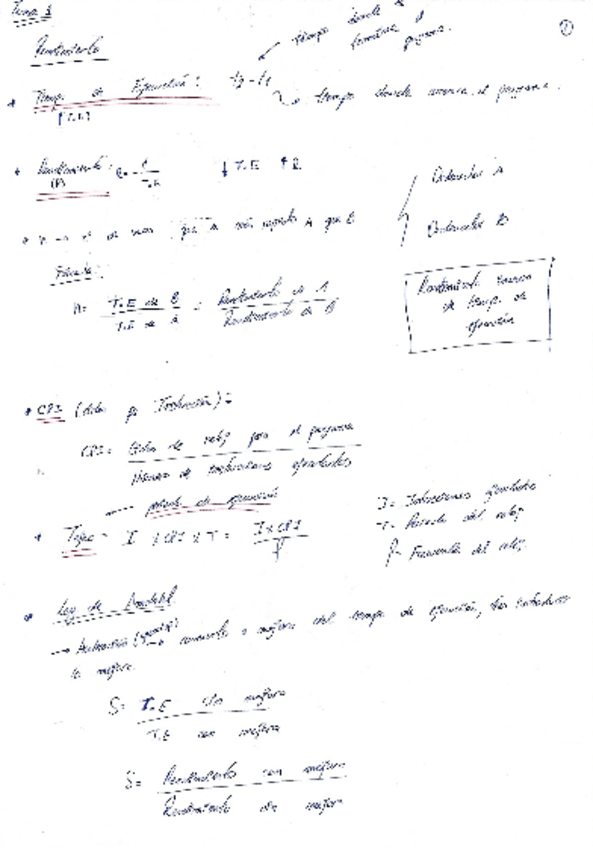 Tema 1
Rendimiento
tiempo donde se
termina el
programa.
* Tiempo de Ejecución: t2 - t1
(T.E)
tiempo donde comienza el programa.
* Rendimiento: R = 1/T.E ↓ T.E ↑ R
(R)
nº de veces que A más rápido A que B
Ordenador A
Ordenador B
Fórmula:
n = T.E de B / T.E de A = Rendimiento de A / Rendimiento de B
Rendimiento inverso
de tiempo de
ejecución
* CPI (ciclos por Instrucción):
CPI = Ciclos de reloj para el programa / Número de instrucciones ejecutadas
tiempo de ejecución
* Tejec = I x CPI x T = I x CPI / f
I = Instrucciones ejecutadas
T = Periodo del reloj
f = Frecuencia del reloj
* Ley de Amdahl
→ Aceleración (speedup) → aumento o mejora del tiempo de ejecución, tras introducir
la mejora.
S = T.E sin mejora / T.E con mejora
S = Rendimiento con mejora / Rendimiento sin mejora